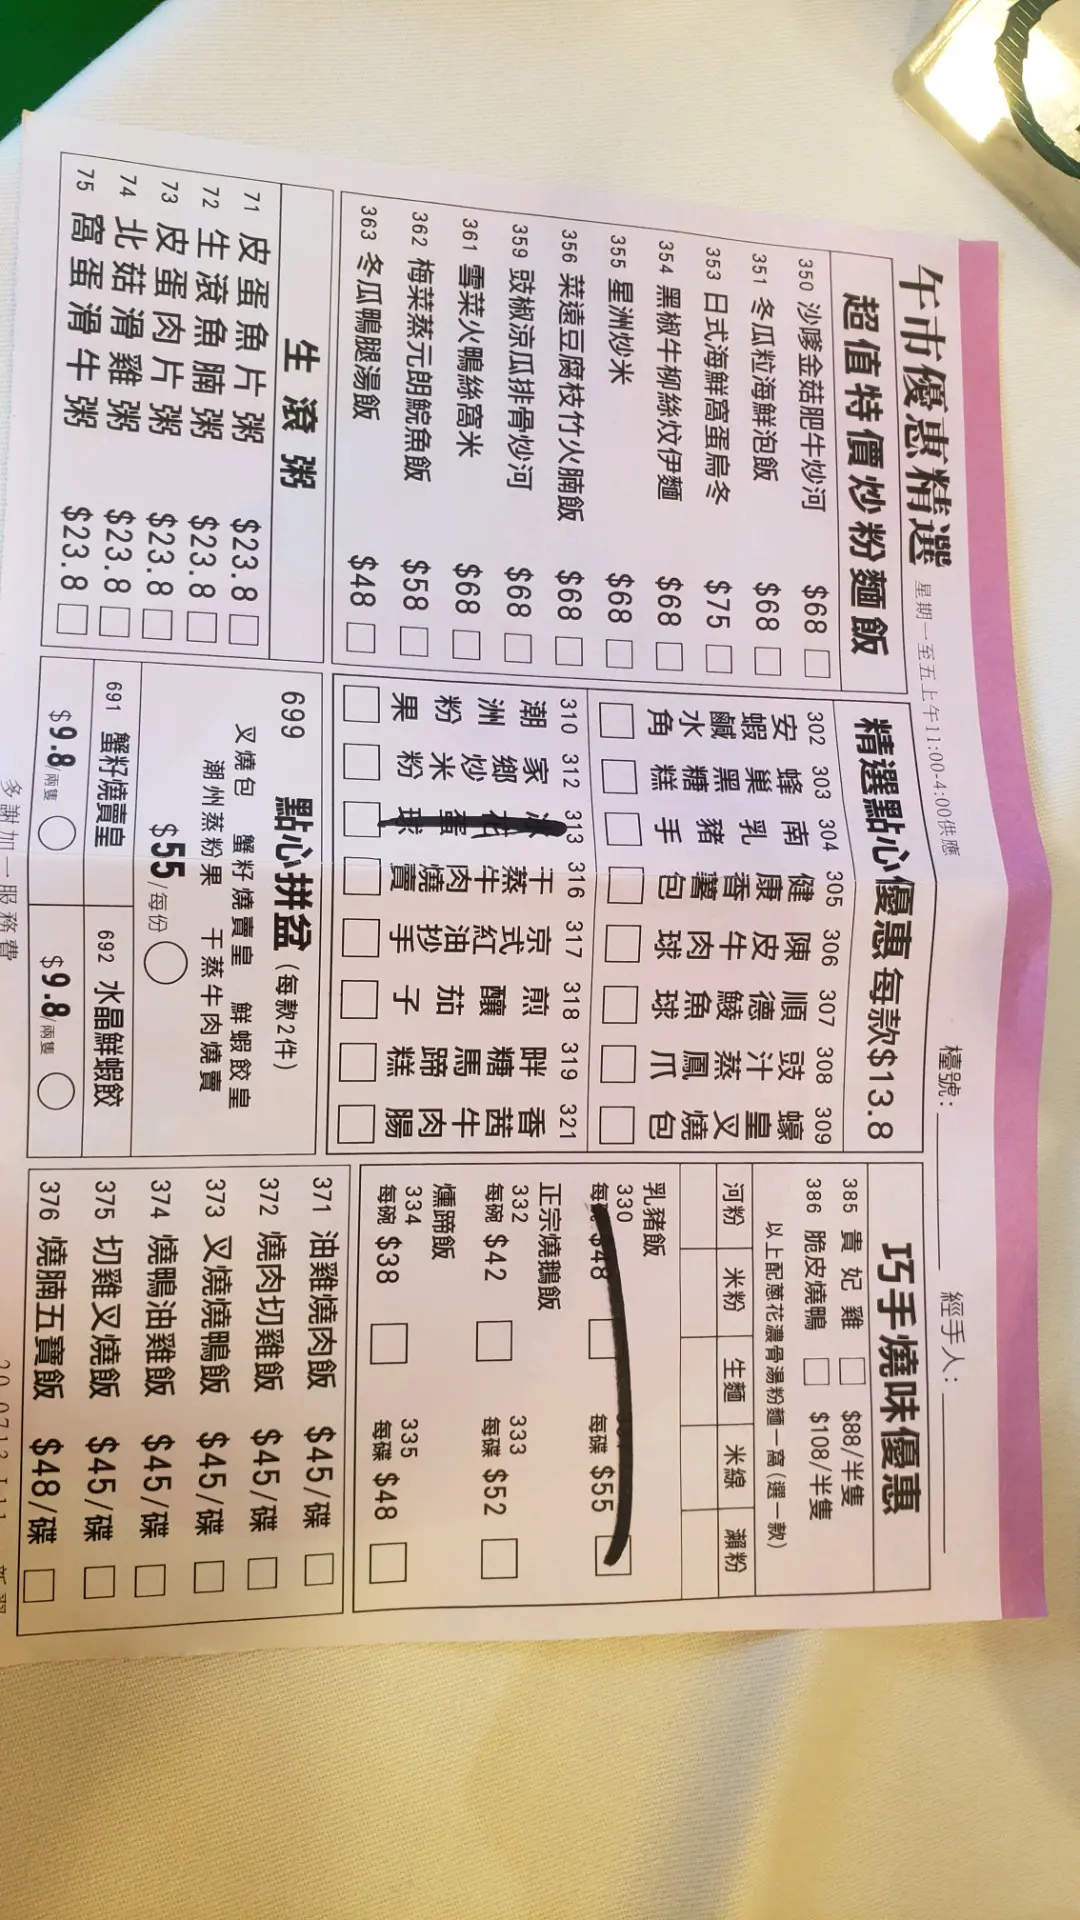 午市優惠精選 星期一至五上午11:00-4:00供應
檯號:
經手人:
超值特價炒粉麵飯
350 沙嗲金菇肥牛炒河 $68
351 冬瓜粒海鮮泡飯 $68
353 日式海鮮窩蛋烏冬 $75
354 黑椒牛柳絲炆伊麵 $68
355 星洲炒米 $68
356 菜遠豆腐枝竹火腩飯 $68
359 豉椒涼瓜排骨炒河 $68
361 雪菜火鴨絲窩米 $68
362 梅菜蒸元朗鯇魚飯 $58
363 冬瓜鴨腿湯飯 $48
生滾粥
71 皮蛋魚片粥 $23.8
72 生滾魚腩粥 $23.8
73 皮蛋肉片粥 $23.8
74 北菇滑雞粥 $23.8
75 窩蛋滑牛粥 $23.8
精選點心優惠 每款$13.8
302 安蝦鹹水角
303 蜂巢黑糖糕
304 南乳豬手
305 健康香薯包
306 陳皮牛肉球
307 順德鯪魚球
308 豉汁蒸鳳爪
309 蠔皇叉燒包
310 潮洲粉果
312 家鄉炒米粉
313 冰花蛋球
316 干蒸牛肉燒賣
317 京式紅油抄手
318 煎釀茄子
319 畔糖馬蹄糕
321 香茜牛肉腸
699 點心拼盆 (每款2件)
叉燒包 蟹籽燒賣皇 鮮蝦餃皇
潮州蒸粉果 干蒸牛肉燒賣
$55/每份
691 蟹籽燒賣皇
$9.8/兩隻
692 水晶鮮蝦餃
$9.8/兩隻
巧手燒味優惠
385 貴妃雞 $88/半隻
386 脆皮燒鴨 $108/半隻
以上配蔥花濃骨湯粉麵一窩(選一款)
河粉 米粉 生麵 米線 瀨粉
乳豬飯
330
每碗 $48 每碟 $55
正宗燒鵝飯
332 333
每碗 $42 每碟 $52
燻蹄飯
334 335
每碗 $38 每碟 $48
371 油雞燒肉飯 $45/碟
372 燒肉切雞飯 $45/碟
373 叉燒燒鴨飯 $45/碟
374 燒鴨油雞飯 $45/碟
375 切雞叉燒飯 $45/碟
376 燒腩五寶飯 $48/碟
多謝加一服務費